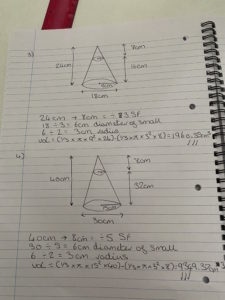 3)
8cm
24cm
16cm
18cm
24cm → 8cm = ÷3 SF
18 ÷ 3 = 6cm diameter of small
6 ÷ 2 = 3cm radius
vol = (1/3 × π × 9² × 24) - (1/3 × π × 3² × 8) = 1960.35cm³
4)
8cm
40cm
32cm
15cm
30cm
40cm → 8cm = ÷5 SF
30 ÷ 5 = 6cm diameter of small
6 ÷ 2 = 3cm radius
vol = (1/3 × π × 15² × 40) - (1/3 × π × 3² × 8) = 9349.32cm³